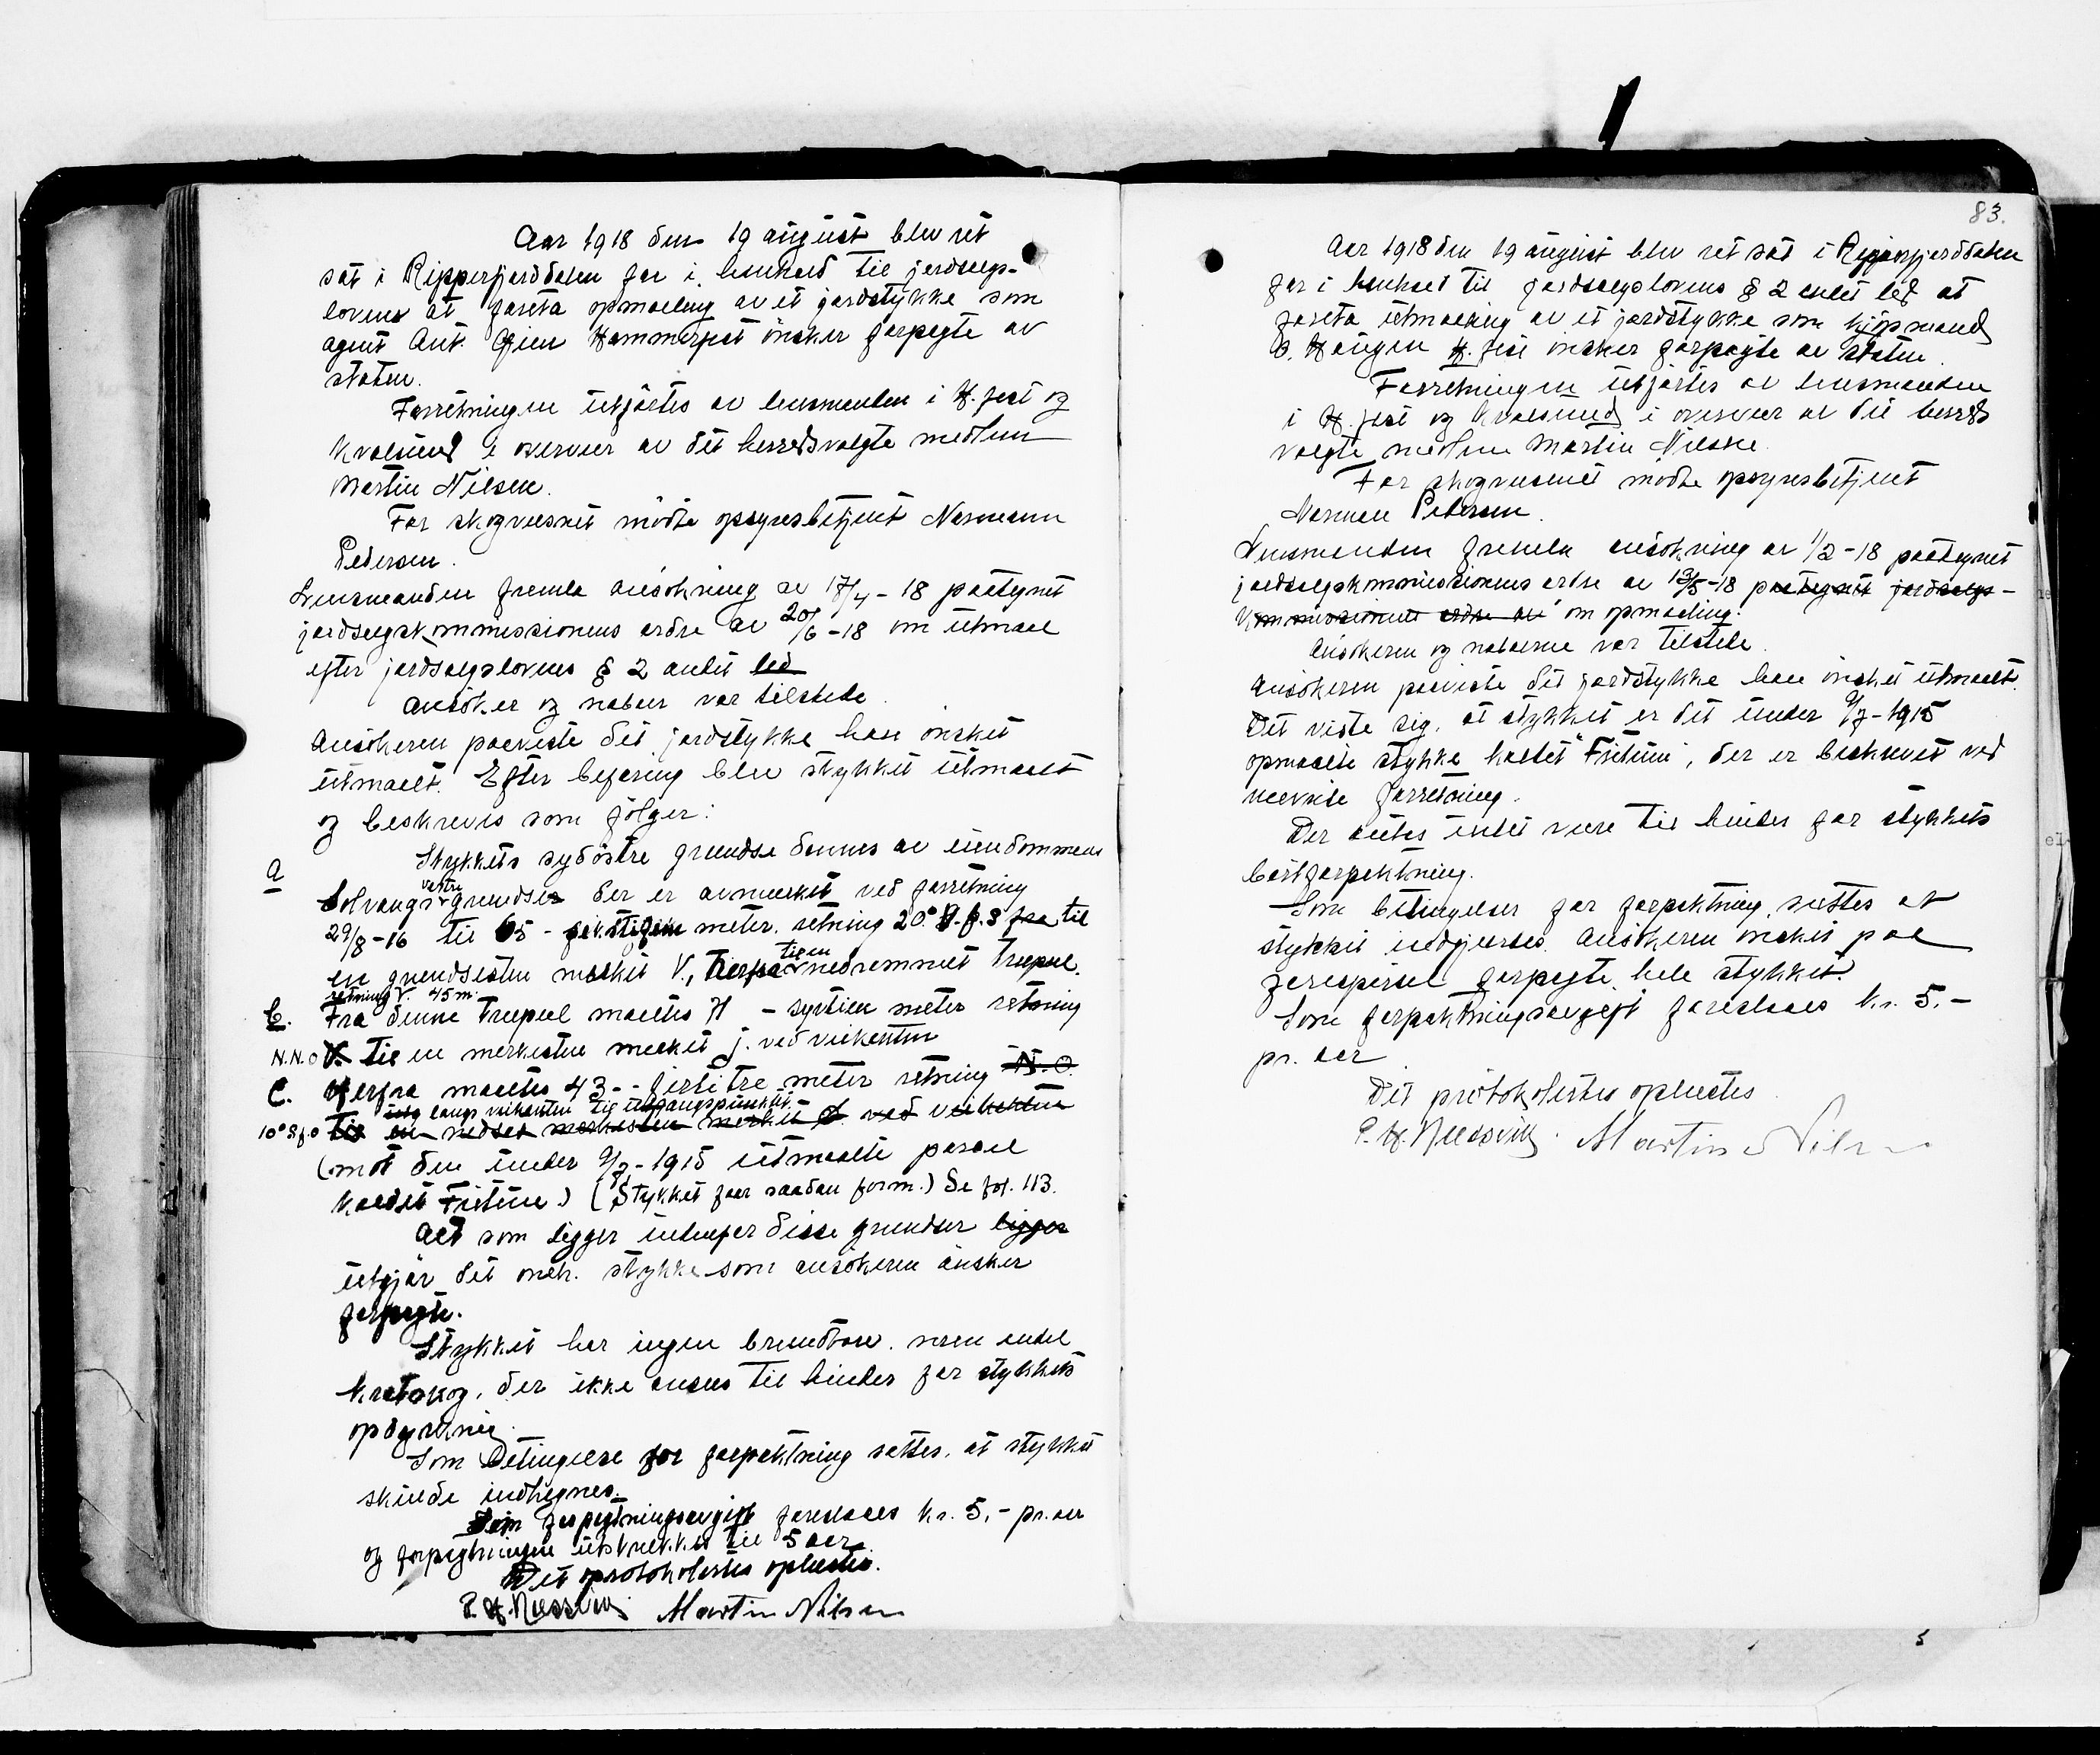 Aar 1918 den 19 august blev ret
sat i Ripperfjorddalen for i henhold til jordsalgs-
lovens at foreta opmaaling av et jordstykke som
agent Ant. Gien Hammerfest ønsker forpagte av
staten.
Forretningen utførtes av lensmanden i H.fest og
Kvalsund i overvær av det herredsvalgte medlem
Martin Nilsen.
For skogvæsenet møtte opsynsbetjent Normann
Pedersen.
Lensmanden fremla ansøkning av 17/4-18 paategnet
jordsalgskommissionens ordre av 20/6-18 om utmaal
efter jordsalgslovens § 2 andet led
Ansøker og naboer var tilstede
Ansøkeren paaviste det jordstykke han ønsket
utmaalt. Efter befaring blev stykket utmaalt
og beskreves som følger:
a Stykkets sydøstre grændse dannes av eiendommens
Solvangs vestre grændser der er avmerket ved forretning
29/8-16 til 65 - seksti fem meter. retning 20° S.f.S fra til
en grændsesten merket V, herfra til en nedrammet træpæl.
retning V. 45 m.
b. Fra denne træpæl maaltes 71 - sytti en meter retning
N.N.O V. til en merkesten merket j. ved veikanten
C. Herfra maaltes 43 - - firti tre meter retning N.O.
langs veikanten til utgangspunktet.
10° S.f.O til en nedsat merkesten merket ved veikanten
(mot den under 9/7-1915 utmaalte parsel
kaldet Fritun) (Stykket faar saadan form.) Se fol. 113.
Alt som ligger indenfor disse grændser ligger
utgjør det omh. stykke som ansøkeren ønsker
forpagte.
Stykket har ingen brændtorv. noen endel
kratskog, der ikke ansees til hinder for stykkets
opdyrkning.
Som betingelse for forpaktning sættes, at stykket
skulde indhegnes.
Som forpagtningsavgift foreslaaes kr. 5,- pr. aar
og forpagtningen utstrækkes til 5 aar.
Det protokolerte oplæstes.
P. H. Martin Nilsen
83.
Aar 1918 den 19 august blev ret sat i Ripperfjorddalen
for i henhold til jordsalgslovens § 2 andet led at
foreta utmaaling av et jordstykke som kjøpmand
O. Haugen H.fest ønsker forpagte av staten.
Forretningen utførtes av lensmanden
i H.fest og Kvalsund i overvær av det herreds
valgte medlem Martin Nilsen.
For skogvæsenet møtte opsynsbetjent
Norman Pedersen.
Lensmanden fremla ansøkning av 1/2-18 paategnet
jordsalgskommissionens ordre av 13/5-18 paategnet jordsalgs-
kommissionens ordre av om opmaaling.
Ansøkeren og naboerne var tilstede.
Ansøkeren paaviste det jordstykke han ønsket utmaalt.
Det viste sig, at stykket er det under 9/7-1915
opmaalte stykke kaldet "Fritun", der er beskrevet ved
nævnte forretning.
Der antas intet være til hinder for stykkets
bortforpaktning.
Som betingelser for forpaktning, sættes at
stykket indgjerdes. Ansøkeren ønsket paa
forespørsel forpagte hele stykket.
Som forpaktningsavgift foreslaaes kr. 5.-
pr. aar
Det protokolerte oplæstes
P. H. Martin Nilsen